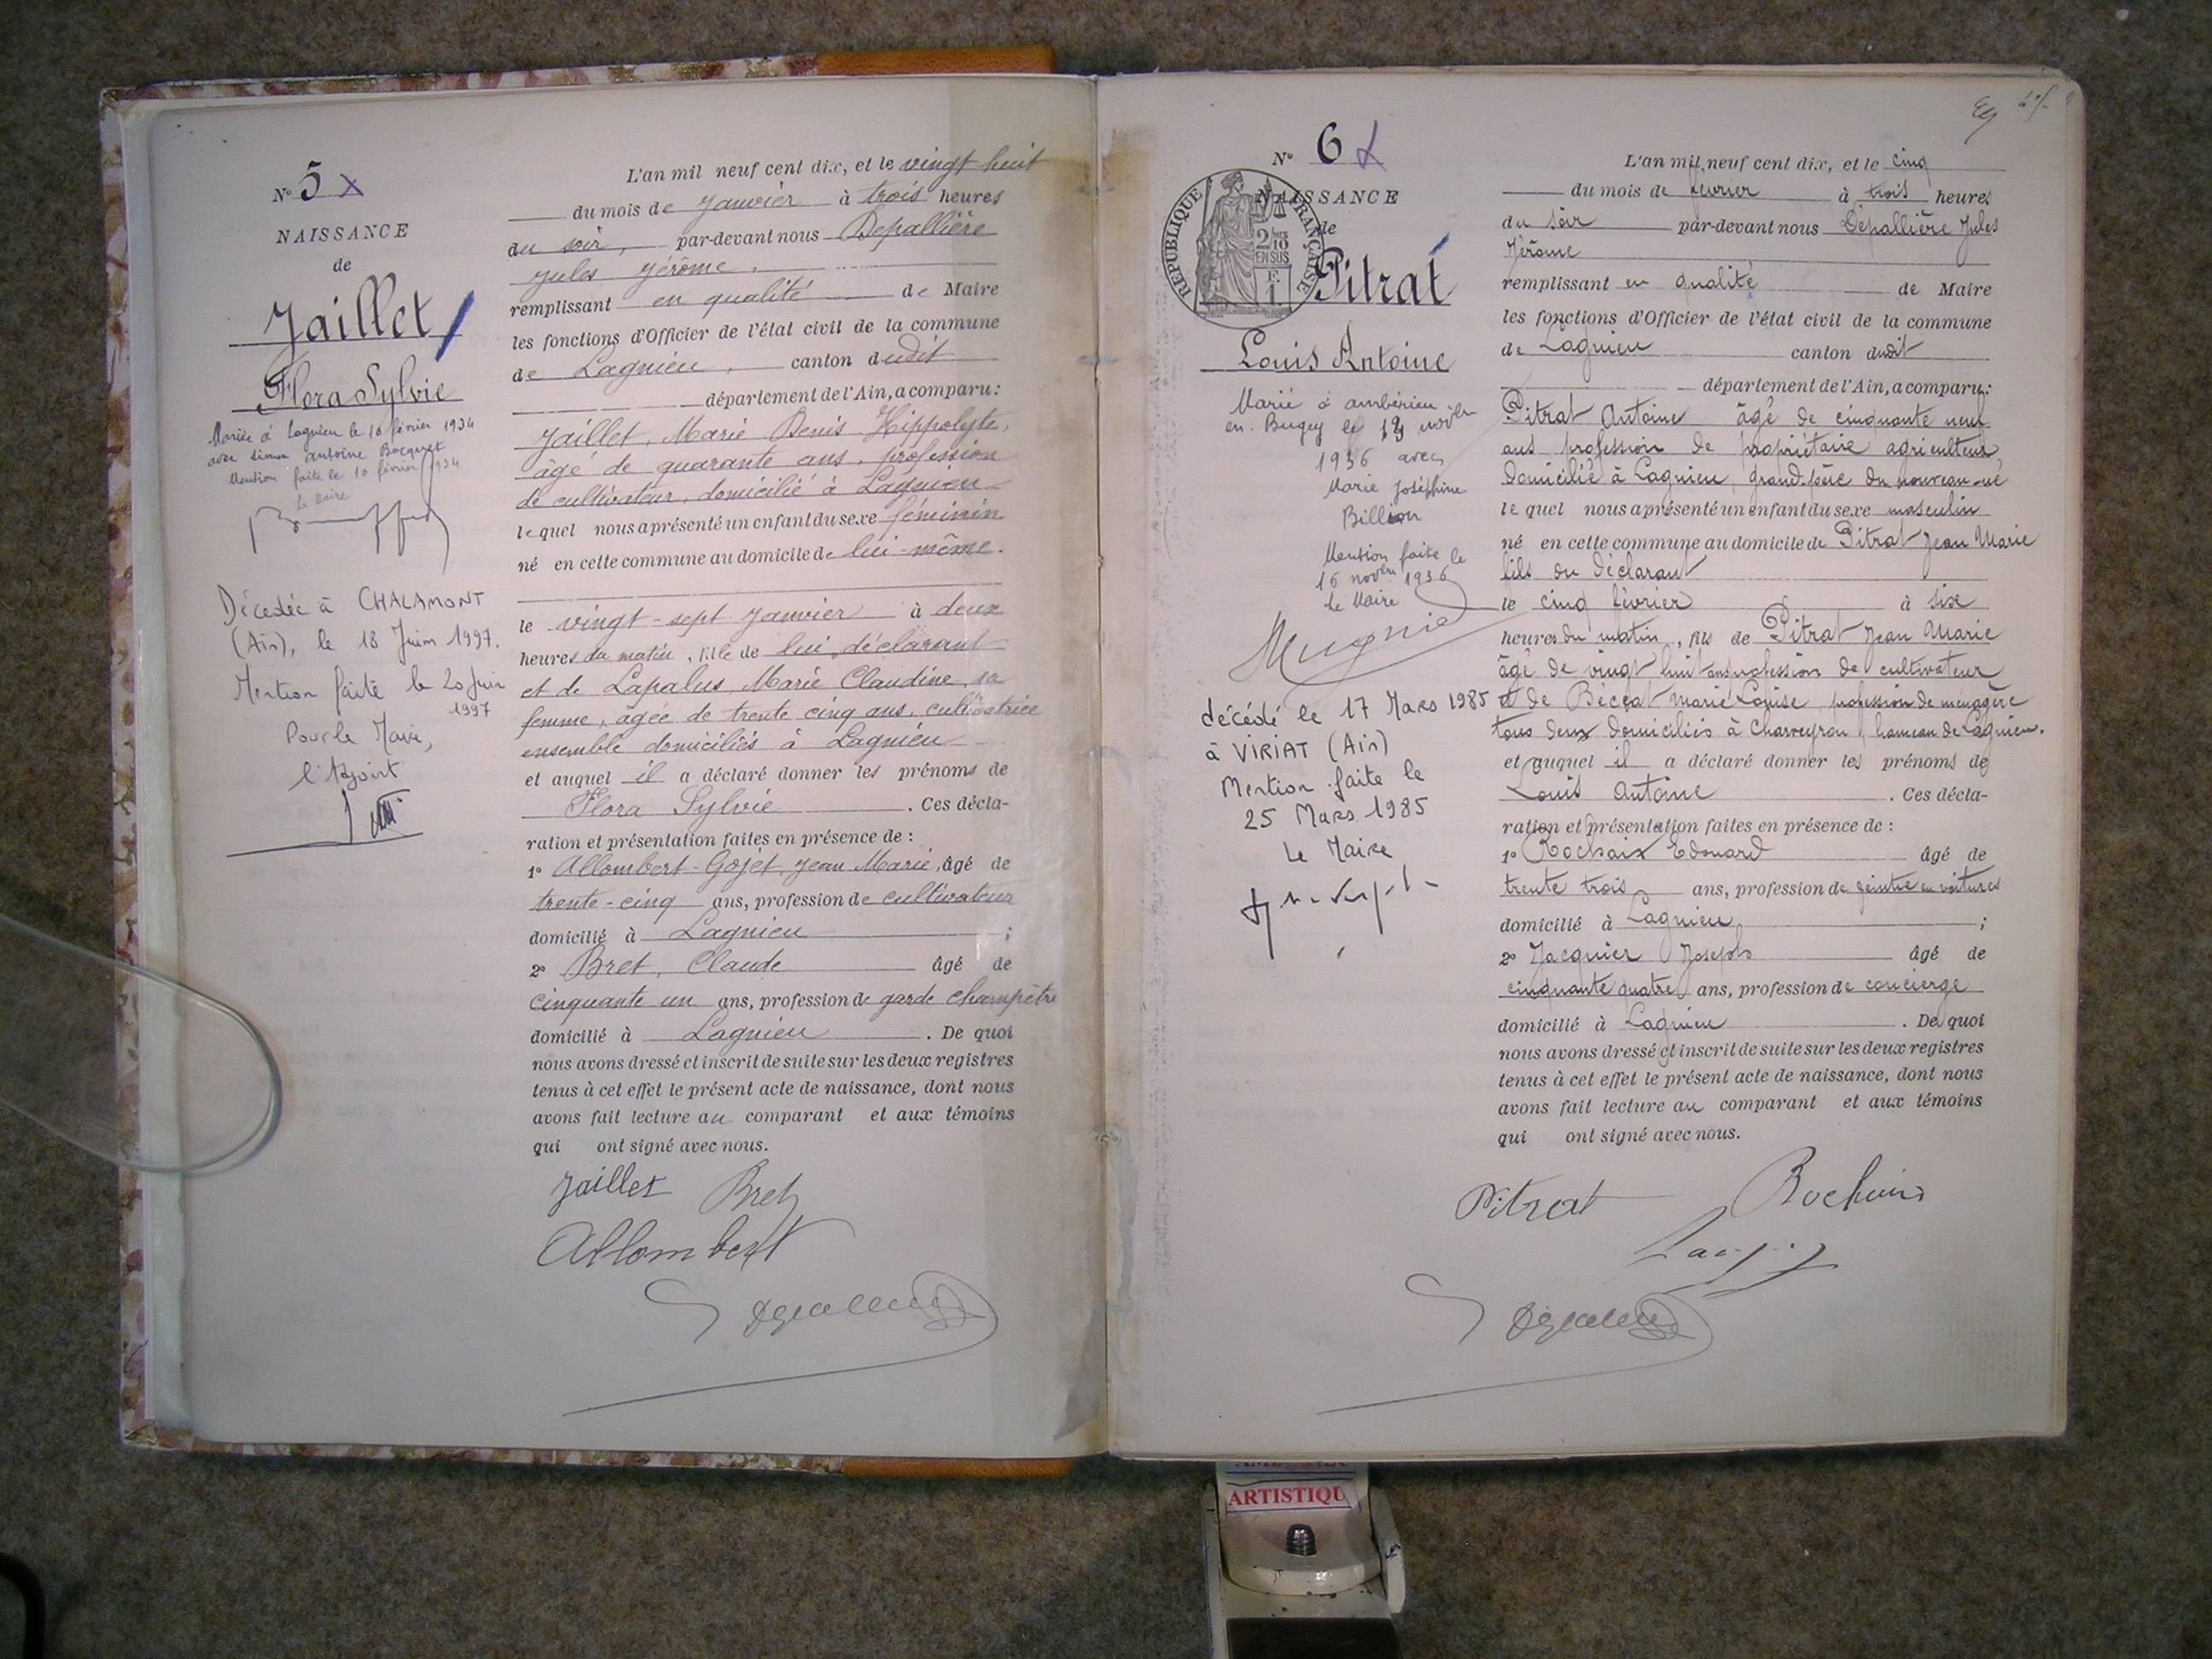 N° 5
NAISSANCE
de
Jaillet
Flora Sylvie
Mariée à Lagnieu le 10 février 1934
avec Simon Antoine Bocquet
Mention faite le 10 février 1934
Le Maire
Décédée à CHALAMONT
(Ain), le 18 Juin 1997.
Mention faite le 20 Juin
1997
Pour le Maire,
l'Adjoint
L'an mil neuf cent dix, et le vingt huit
du mois de Janvier à trois heures
du soir, par-devant nous Depallière
Jules Jérôme.
remplissant en qualité de Maire
les fonctions d'Officier de l'état civil de la commune
de Lagnieu, canton dudit
département de l'Ain, a comparu:
Jaillet, Marie Denis Hippolyte,
âgé de quarante ans, profession
de cultivateur, domicilié à Lagnieu
lequel nous a présenté un enfant du sexe féminin
né en cette commune au domicile de lui-même.
le vingt-sept Janvier à deux
heures du matin, fille de lui déclarant
et de Lapalus, Marie Claudine, sa
femme, âgée de trente cinq ans, cultivatrice
ensemble domiciliés à Lagnieu
et auquel il a déclaré donner les prénoms de
Flora Sylvie. Ces décla-
ration et présentation faites en présence de :
1° Allombert-Gojet, Jean Marie, âgé de
trente-cinq ans, profession de cultivateur
domicilié à Lagnieu ;
2° Bret, Claude âgé de
cinquante un ans, profession de garde champêtre
domicilié à Lagnieu. De quoi
nous avons dressé et inscrit de suite sur les deux registres
tenus à cet effet le présent acte de naissance, dont nous
avons fait lecture au comparant et aux témoins
qui ont signé avec nous.
Jaillet Bret
Allombert
N° 6
NAISSANCE
de
RÉPUBLIQUE FRANÇAISE
2/10 EN SUS
Pitrat
Louis Antoine
Marié à Ambérieu
en Bugey le 14 novbre
1936 avec
Marie Joséphine
Billion
Mention faite le
16 novbre 1936
Le Maire
décédé le 17 Mars 1985
à VIRIAT (Ain)
Mention faite le
25 Mars 1985
Le Maire
L'an mil neuf cent dix, et le cinq
du mois de février à trois heures
du soir par-devant nous Dépallière Jules
Jérôme
remplissant en qualité de Maire
les fonctions d'Officier de l'état civil de la commune
de Lagnieu canton dudit
département de l'Ain, a comparu:
Pitrat Antoine âgé de cinquante neuf
ans profession de propriétaire agriculteur
domicilié à Lagnieu, grand-père du nouveau-né
lequel nous a présenté un enfant du sexe masculin
né en cette commune au domicile de Pitrat Jean Marie
fils du déclarant
le cinq février à six
heures du matin, fils de Pitrat Jean Marie
âgé de vingt huit ans profession de cultivateur
et de Béccat Marie Louise profession de ménagère
tous deux domiciliés à Charveyron, hameau de Lagnieu.
et auquel il a déclaré donner les prénoms de
Louis Antoine. Ces décla-
ration et présentation faites en présence de :
1° Rochaix Edouard âgé de
trente trois ans, profession de peintre en voitures
domicilié à Lagnieu ;
2° Jacquier Joseph âgé de
cinquante quatre ans, profession de concierge
domicilié à Lagnieu. De quoi
nous avons dressé et inscrit de suite sur les deux registres
tenus à cet effet le présent acte de naissance, dont nous
avons fait lecture au comparant et aux témoins
qui ont signé avec nous.
Pitrat Rochaix
ARTISTIQU